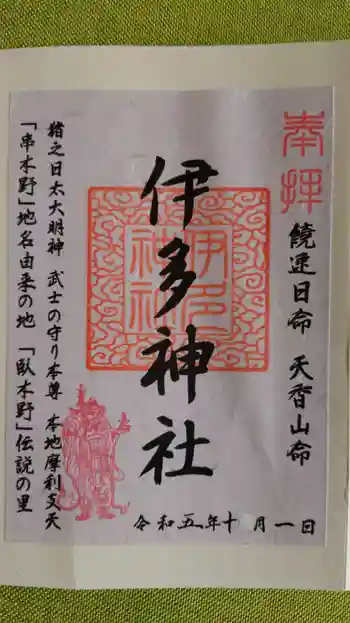 奉拝
饒速日命 天香山命
伊多神社
伊多神社
令和五年十月一日
猪之日太大明神 武士の守り本尊 本地摩利支天
「串木野」地名由来の地 「臥木野」伝説の里